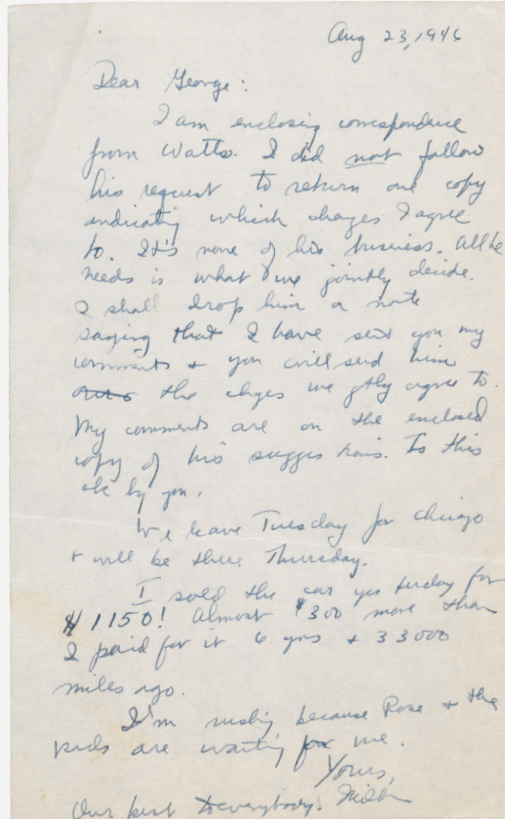 Aug 23, 1946
Dear George:
I am enclosing correspondence
from Watts. I did not follow
his request to return one copy
indicating which changes I agree
to. It's none of his business. All he
needs is what we jointly decide.
I shall drop him a note
saying that I have sent you my
comments + you will send him
the chges we jtly agree to.
My comments are on the enclosed
copy of his suggestions. Is this
ok by you.
We leave Tuesday for Chicago
+ will be there Thursday.
I sold the car yesterday for
$1150! Almost $300 more than
I paid for it 6 yrs + 33000
miles ago.
I'm rushing because Rose + the
kids are waiting for me.
Yours,
Our best to everybody. Milton